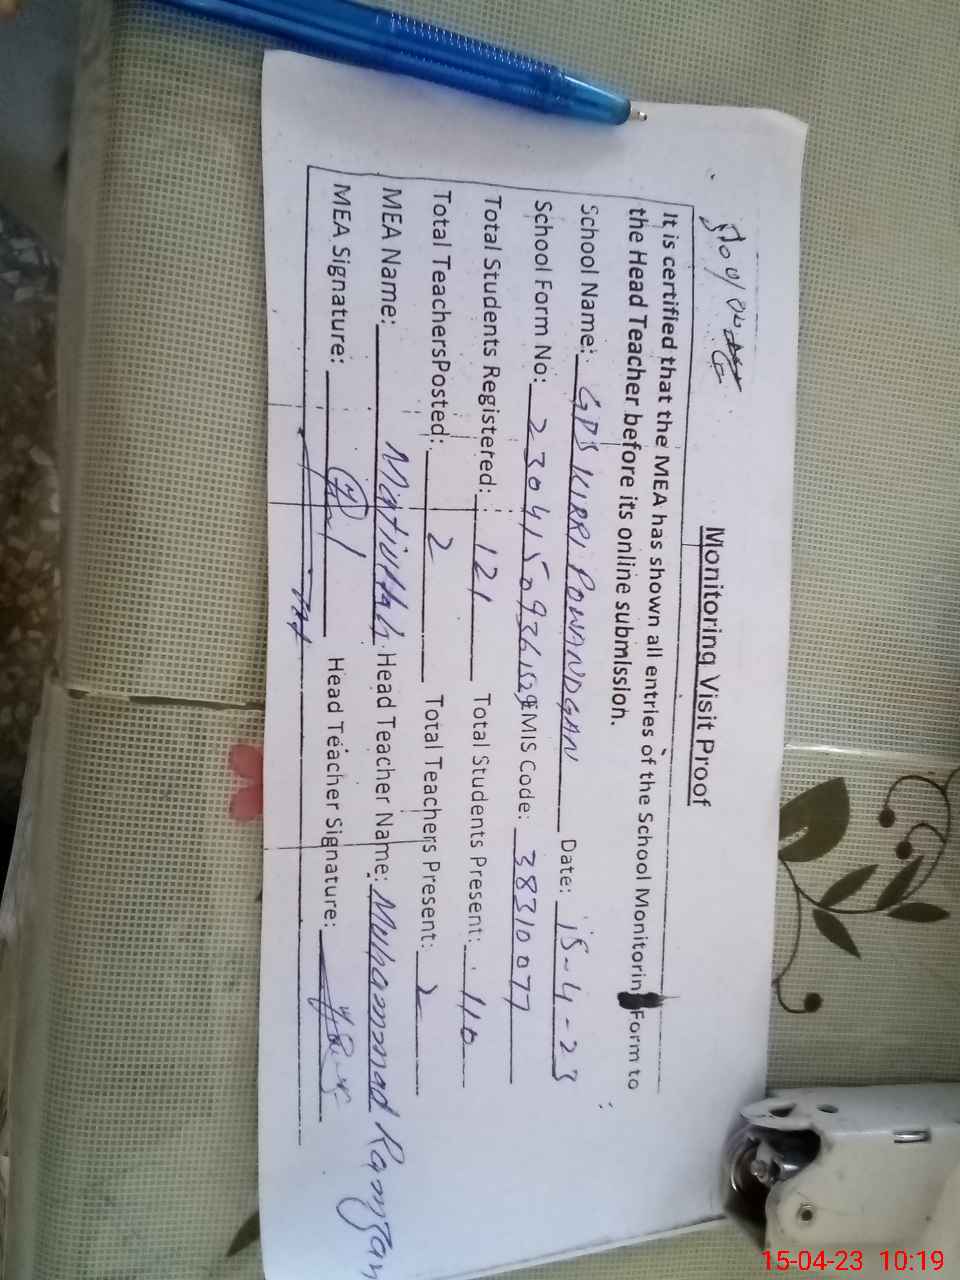 Monitoring Visit Proof
It is certified that the MEA has shown all entries of the School Monitorin Form to
the Head Teacher before its online submission.
School Name: GPS KIRRI POWANDGAN Date: 15-4-23
School Form No: 230415093610 EMIS Code: 38310077
Total Students Registered: 121 Total Students Present: 110
Total TeachersPosted: 2 Total Teachers Present: 2
MEA Name: Matiullah Head Teacher Name: Muhammad Ramzan
MEA Signature: Head Teacher Signature:
15-04-23 10:19